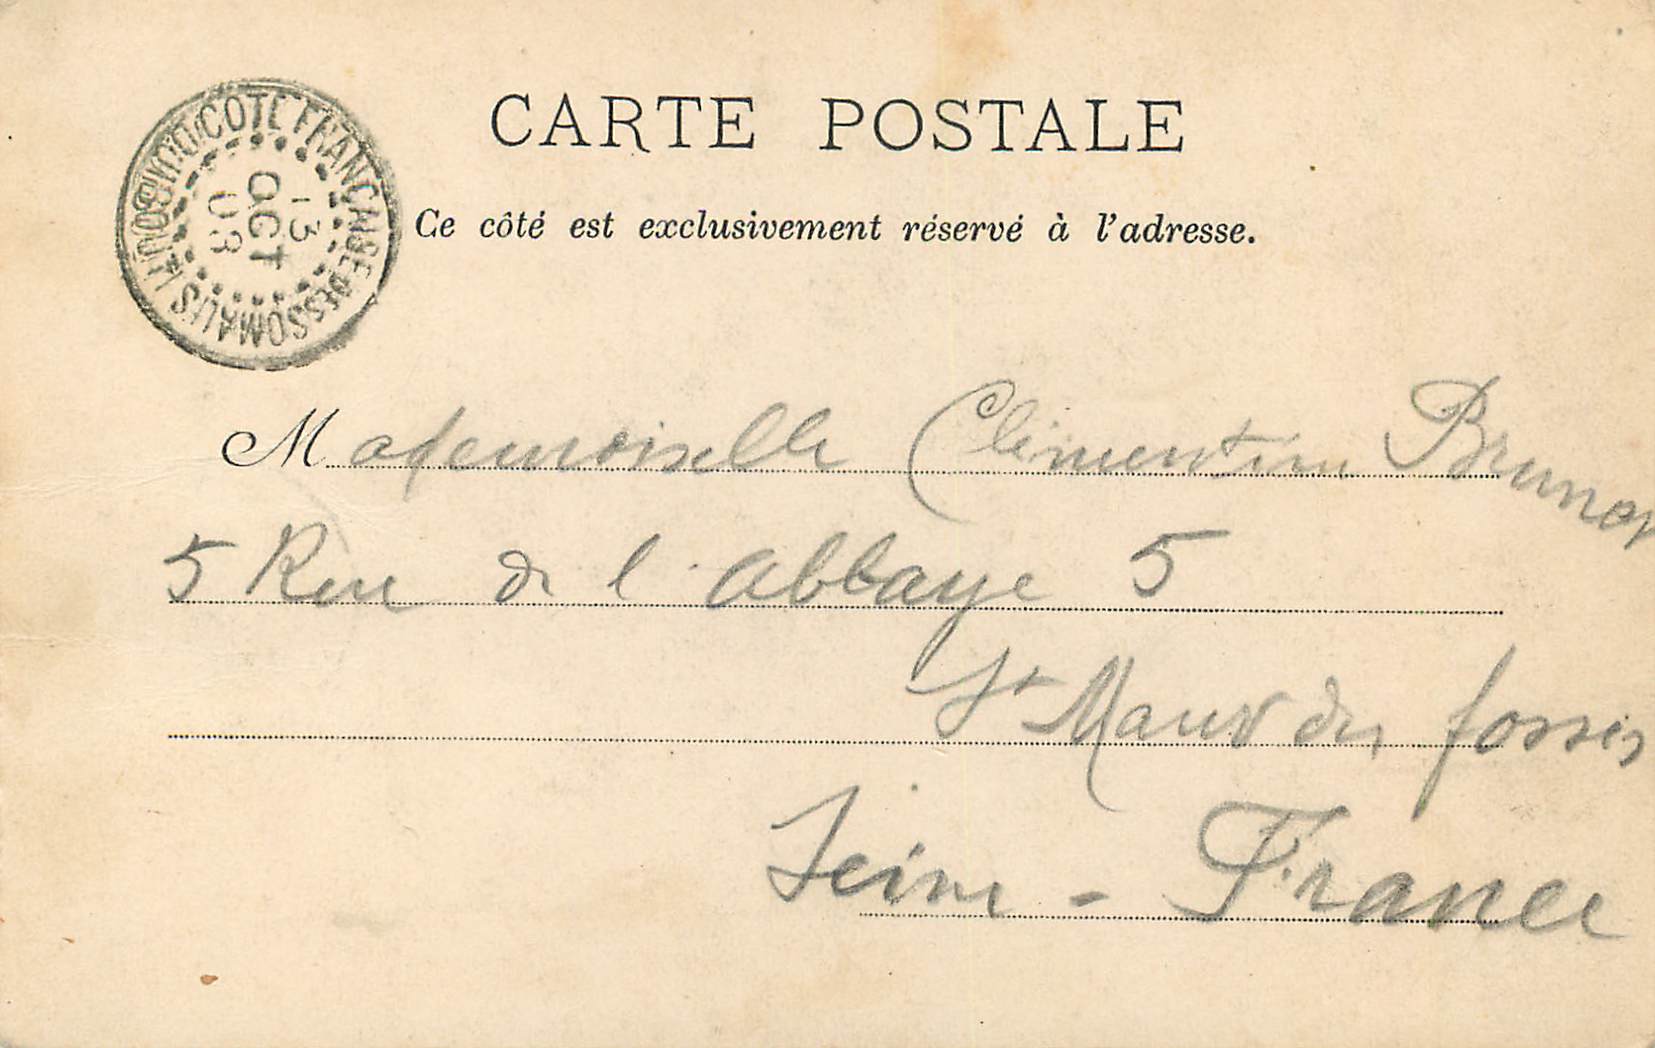 CARTE POSTALE
Ce côté est exclusivement réservé à l'adresse.
DJIBOUTI COTE FRANÇAISE DES SOMALIS
13
OCT
03
Mademoiselle Clémentine
5 Rue de l'abbaye 5
St Maur des fossés
Seine - France